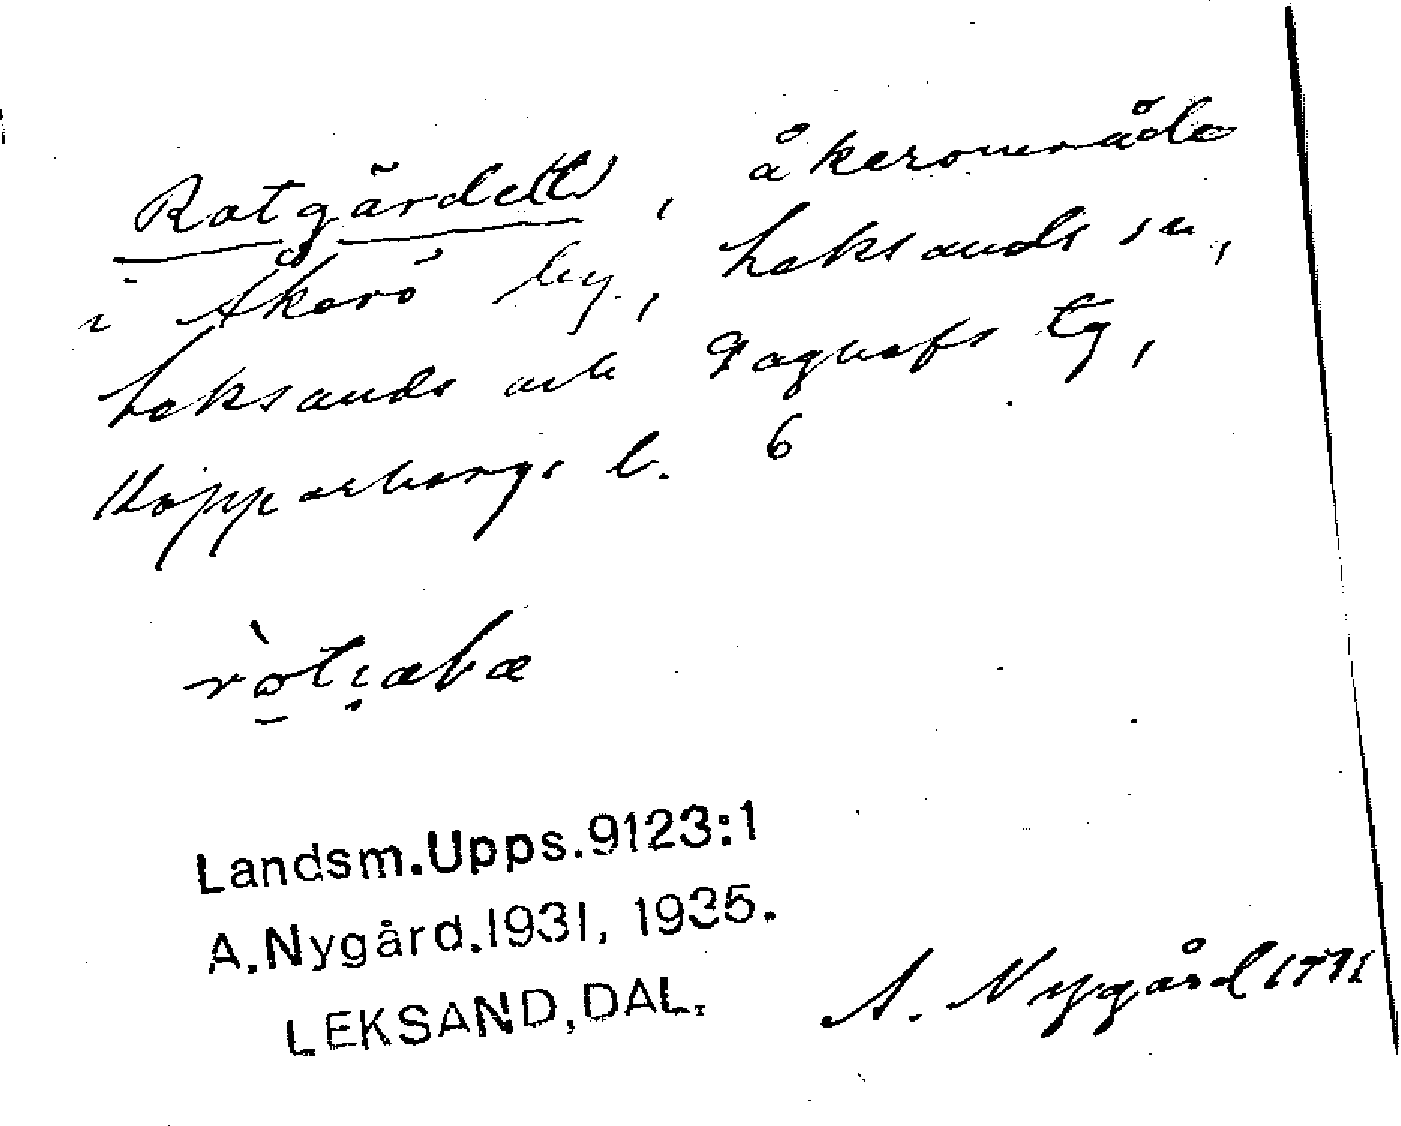 Rotgärdet, åkerområde
i Åkerö by, Leksands sn,
Leksands och Gagnefs tg,
Kopparbergs l. 6
Landsm.Upps.9123:1
A.Nygård.1931, 1935.
LEKSAND, DAL.
A. Nygård 1931